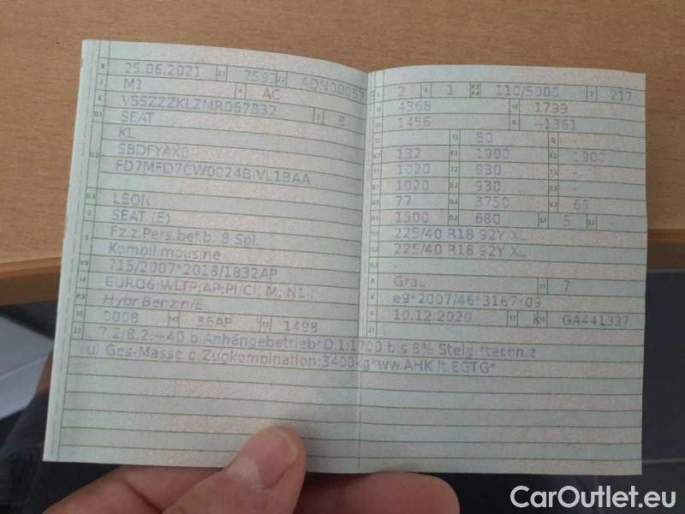 29.06.2021 7593
M1 AC
VSSZZZKLZMR057832
SEAT
KL
SBDFYAX0
FD7MFD7CW0024B VL1BAA
LEON
SEAT (E)
Fz.z.Pers.bef.b. 8 Spl.
Kombilimousine
715/2007*2018/1832AP
EURO6 WLTP;AP;PI/CI; M, N1
Hybr.Benzin/E
0008 36AP 1498
2 1 110/5000 217
4368 1799
1456 -1361
80 -
132 1900 1900
1020 930 -
1020 930 -
77 3750 66
1500 680 5 -
225/40 R18 92Y XL
225/40 R18 92Y XL
-
Grau 7
e9*2007/46*3167*09
10.12.2020 K GA441337
7.2/8.2:+40 b.Anhängebetrieb*O.1:1700 bis 8% Steig.*techn.z
ul.Ges-Masse d.Zugkombination:3400kg*ww.AHK lt.EGTG*
CarOutlet.eu